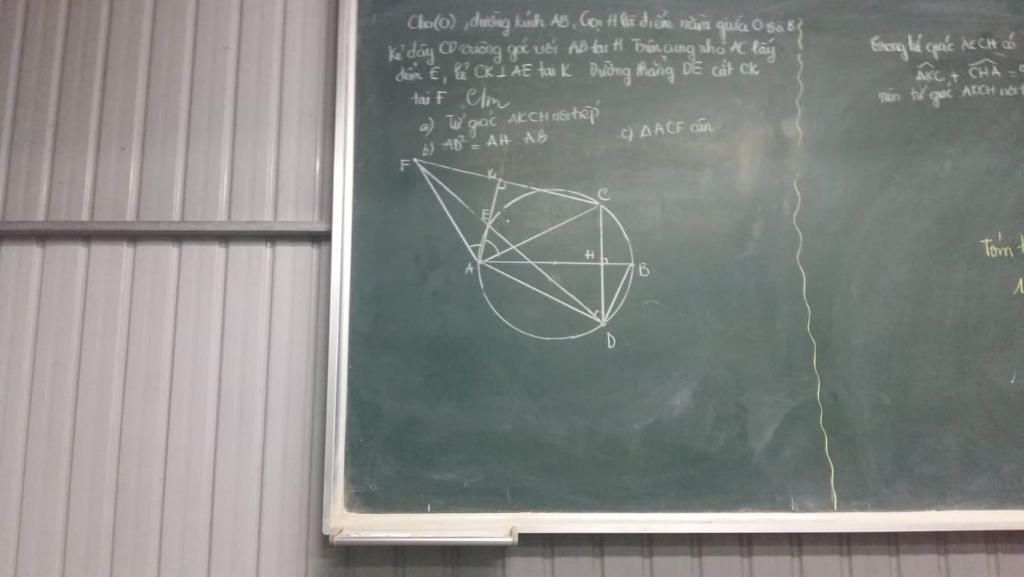 Cho (O), đường kính AB, Gọi H là điểm nằm giữa O và B
Kẻ dây CD vuông góc với AB tại H Trên cung nhỏ AC lấy
điểm E, kẻ CK⊥AE tại K Đường thẳng DE cắt CK
tại F C/m
a) Tứ giác AKCH nội tiếp
b) AD² = AH . AB
c) ΔACF cân
F
K
C
E
A
H
B
D
Trong tứ giác AKCH có
AKC + CHA =
nên tứ giác AKCH nội
tóm